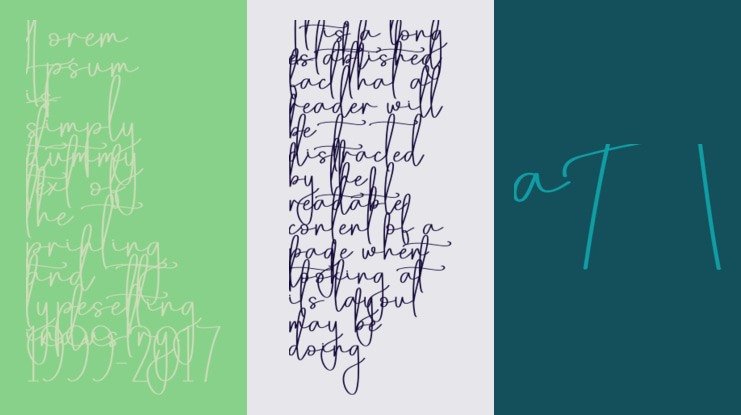 Lorem
Ipsum
is
simply
dummy
text of
the
printing
and
typesetting
industry
1999-2017
This a long
established
fact that a
reader will
be
distracted
by the
readable
content of a
page when
looking at
its layout
may be
doing
a T